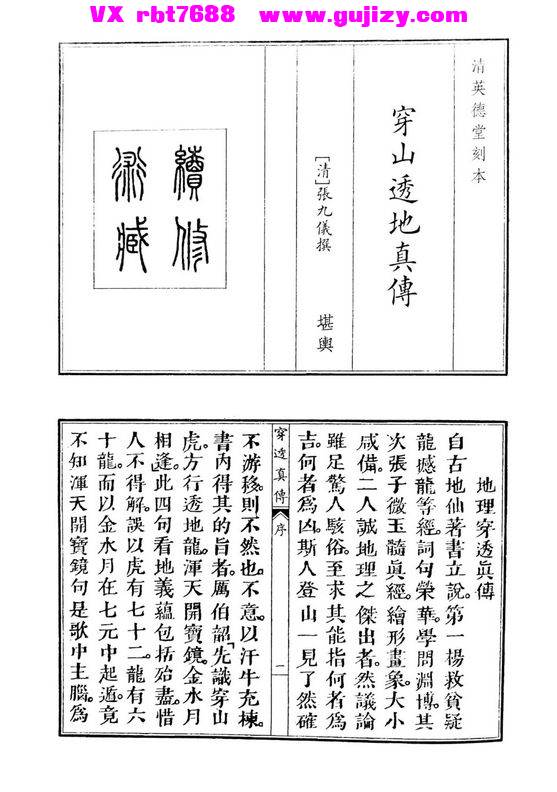 VX rbt7688 www.gujizy.com
清英德堂刻本
穿山透地真傳
[清]張九儀撰
堪輿
續修
術藏
地理穿透眞傳
自古地仙著書立說。第一楊救貧疑
龍撼龍等經。詞句榮華。學問淵博。其
次張子微玉髓眞經。繪形畫象。大小
咸備。二人誠地理之傑出者。然議論
雖足驚人駭俗。至求其能指何者爲
吉。何者爲凶。斯人登山一見了然確
穿透眞傳
序
一
不游移。則不然也。不意。以汗牛充棟。
書內得其的旨者。厲伯韶「先識穿山
虎。方行透地龍。渾天開寶鏡。金水月
相逢」此四句看地義蘊包括殆盡。惜
人不得解。誤以虎有七十二。龍有六
十龍。而以金水月在七元中起遁。竟
不知渾天開寶鏡句是歌中主腦。爲